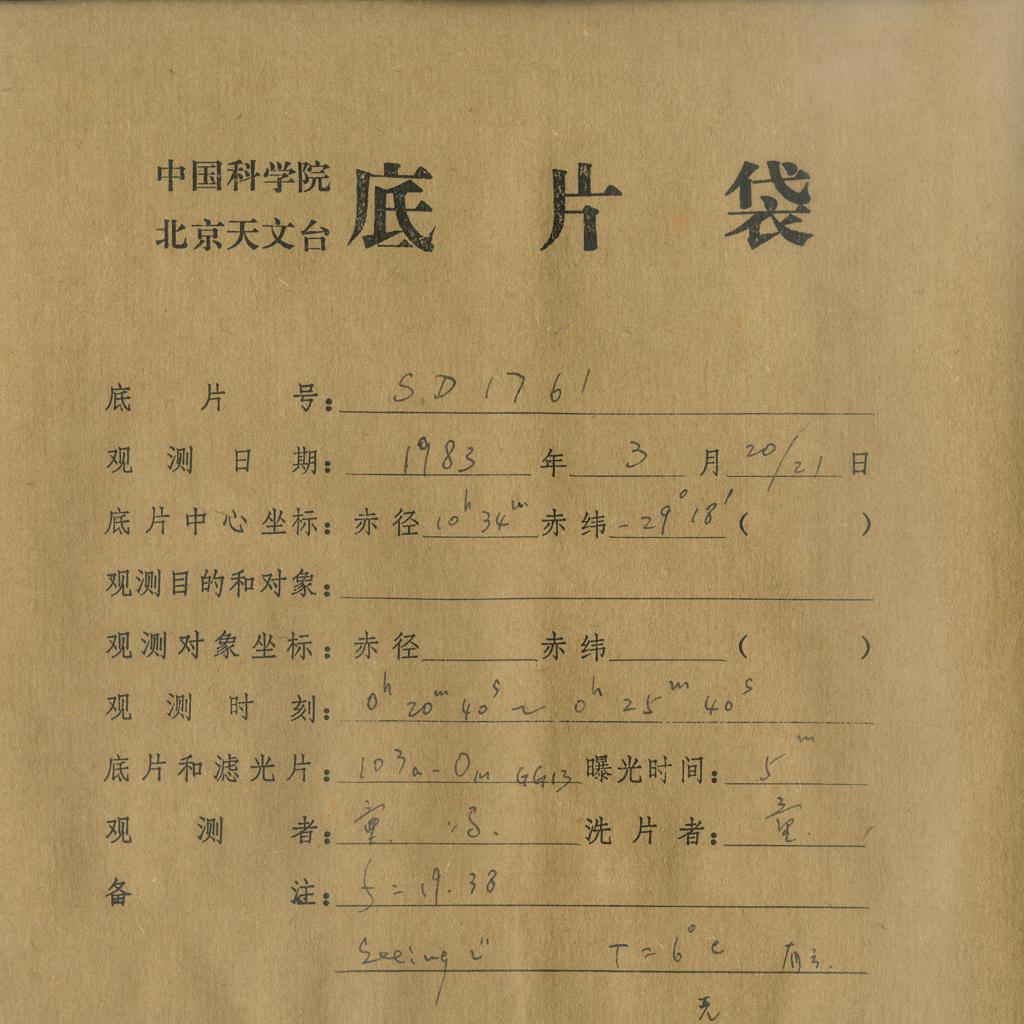 中国科学院
北京天文台 底片袋
底片号： S.D 1761
观测日期： 1983 年 3 月 20/21 日
底片中心坐标：赤径 10h 34m 赤纬 -29° 18′ （ ）
观测目的和对象：
观测对象坐标：赤径 赤纬 （ ）
观测时刻： 0h 20m 40s ~ 0h 25m 40s
底片和滤光片： 103a-O GG13 曝光时间： 5m
观测者： 童 冯. 洗片者： 童.
备注： f = 19.38
Seeing 2" T = 6°C 有云.